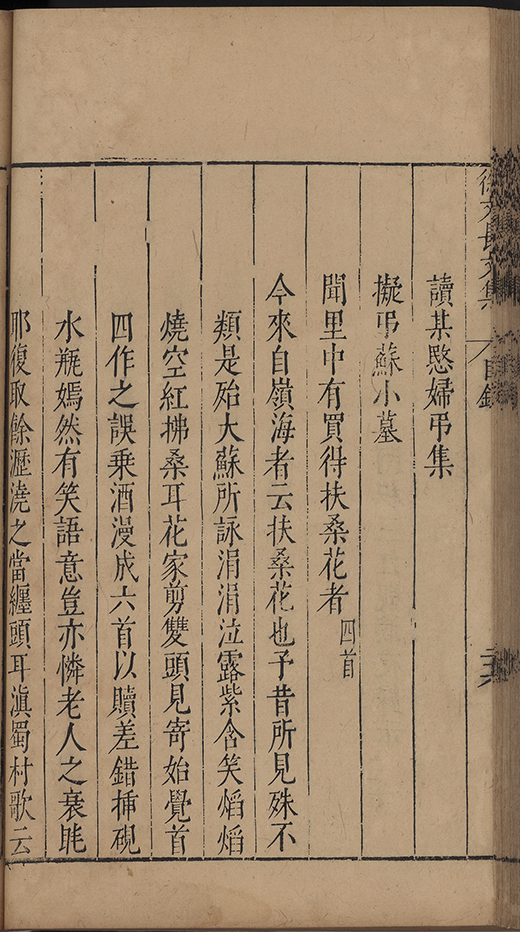 徐文長文集 目錄
讀某愍婦弔集
擬弔蘇小墓
聞里中有買得扶桑花者 四首
今來自嶺海者云扶桑花也予昔所見殊不
類是殆大蘇所詠涓涓泣露紫含笑焰焰
燒空紅拂桑耳花家剪雙頭見寄始覺首
四作之誤乘酒漫成六首以贖差錯揷硯
水瓶嫣然有笑語意豈亦憐老人之衰眊
耶復取餘瀝澆之當纏頭耳滇蜀村歌云